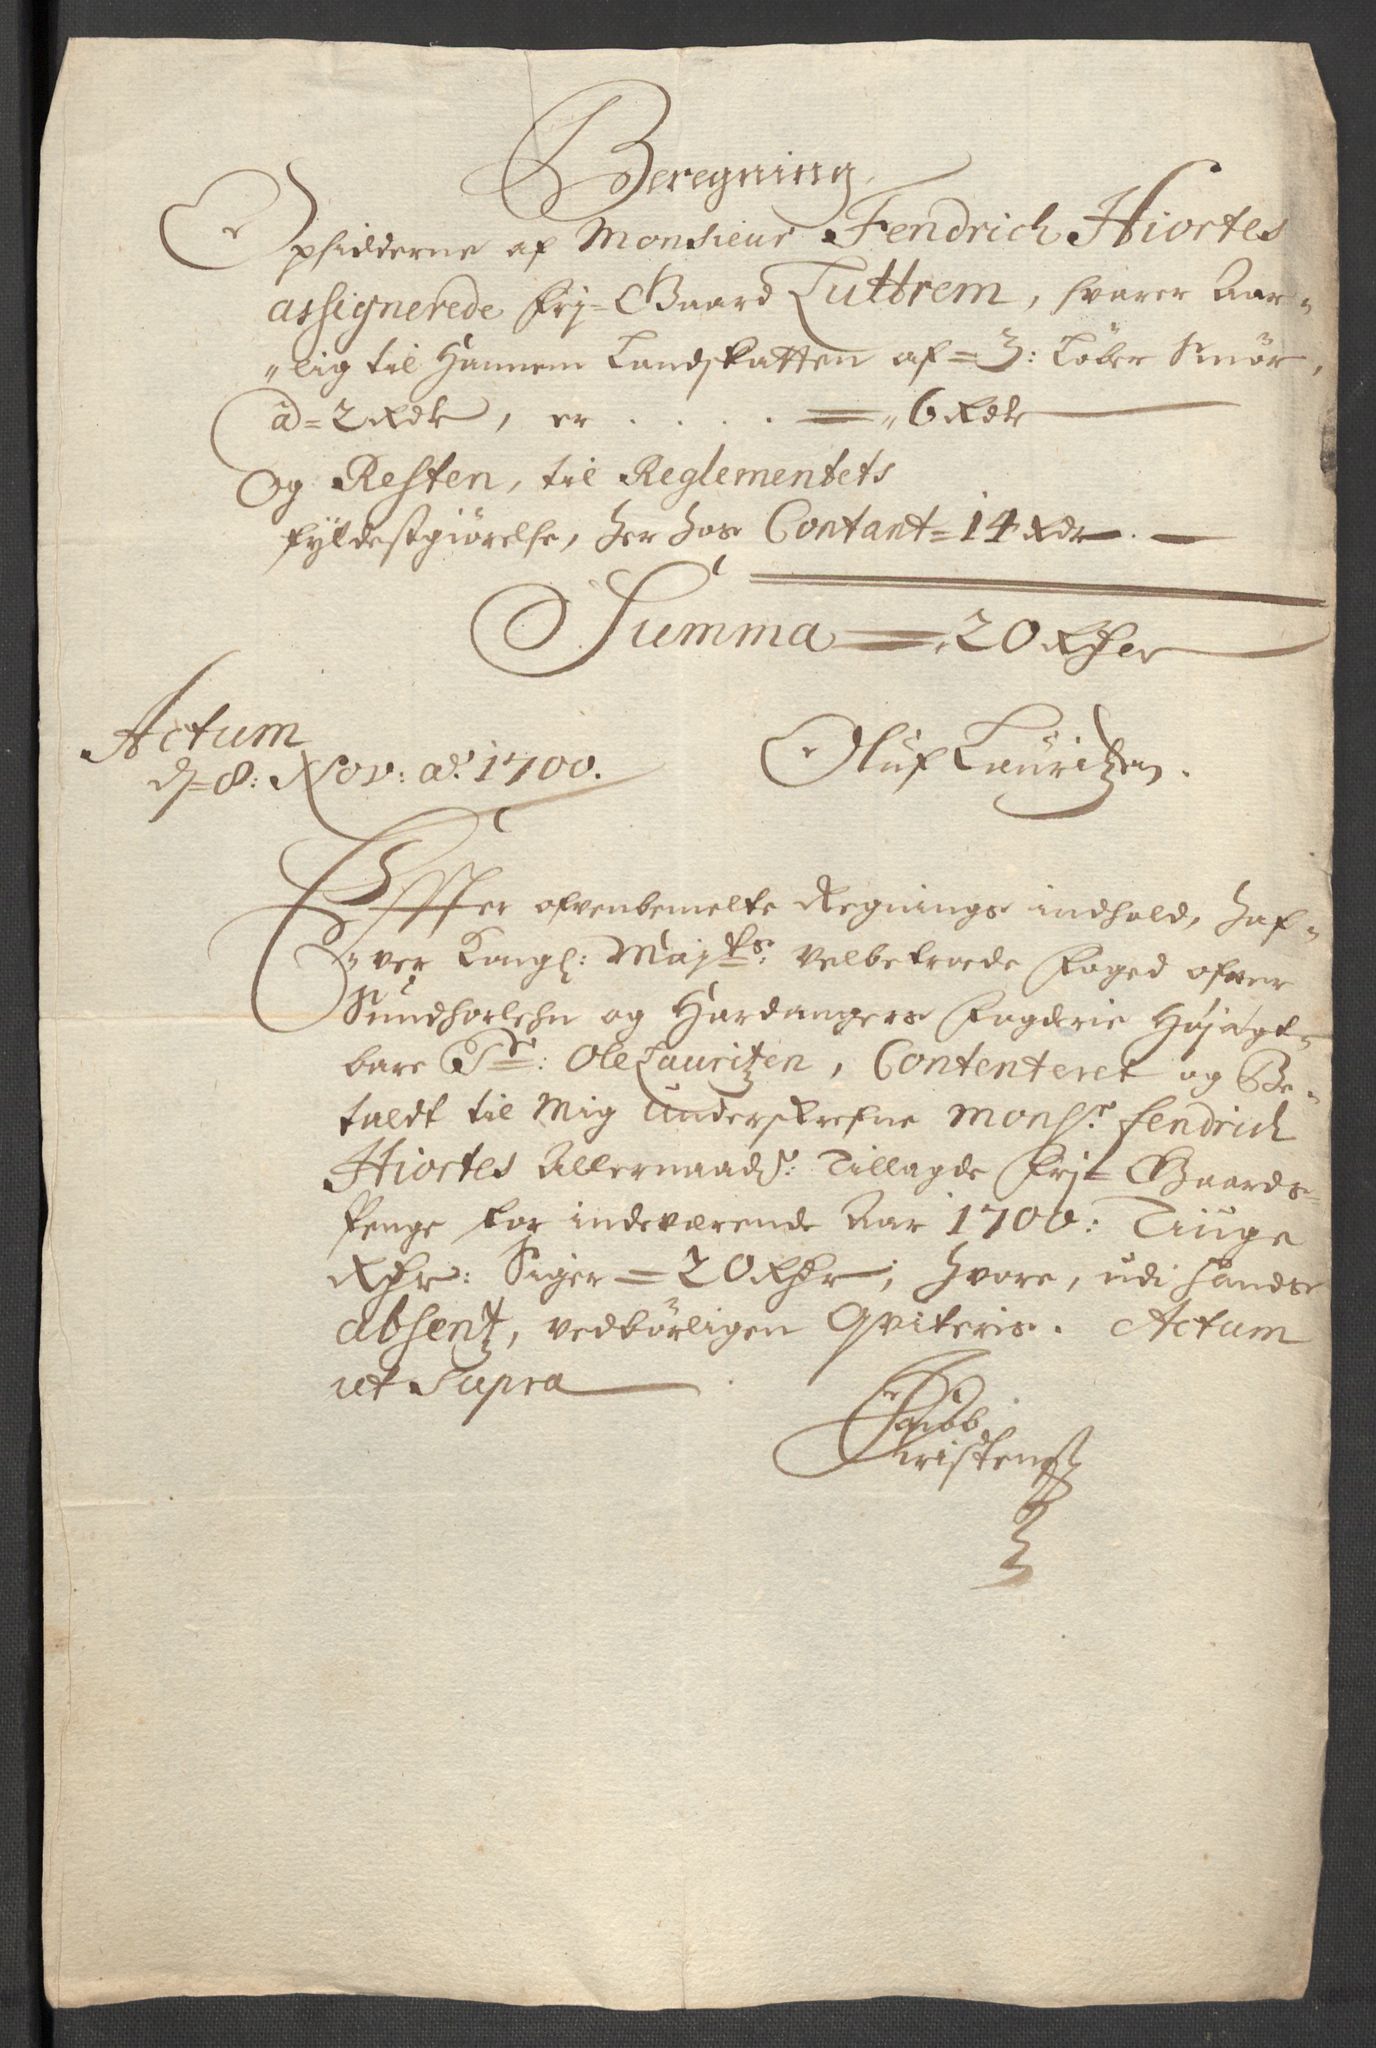 Beregning
Opsidderne af Monsieur Fendrich Hiortes
assignerede frj-Gaard Luttrem, svarer Aar-
lig til Hannem Landskatten af = 3: Løber Smør,
â = 2 Rdr, er . . . . = 6 Rdr
Og Resten, til Reglementets
fyldestgiørelse, her hos Contant = 14 Rdr. —
Summa = 20 Rdr
Actum
d = 8: Nov: ao: 1700.
Oluf Lauritzen.
Effter ofvenbemelte Regnings indhold, haf-
ver Kongl: Maj.ts: velbetroede Foged ofver
Sundhorlehn og Hardangers Fogderie Højagt-
bare Sr: Ole Lauritzen, Contenteret og Be-
taldt til Mig underskrefne Monsr. fendrich
Hiortes Allernaads: Tillagde frj-Gaards-
Penge for indeværende Aar 1700: Tiuge
Rdr: Siger = 20 Rdr; hvore, udi hands
absentz, vedbörligen Qviteris. Actum
ut Supra
Jacob
Cristensen